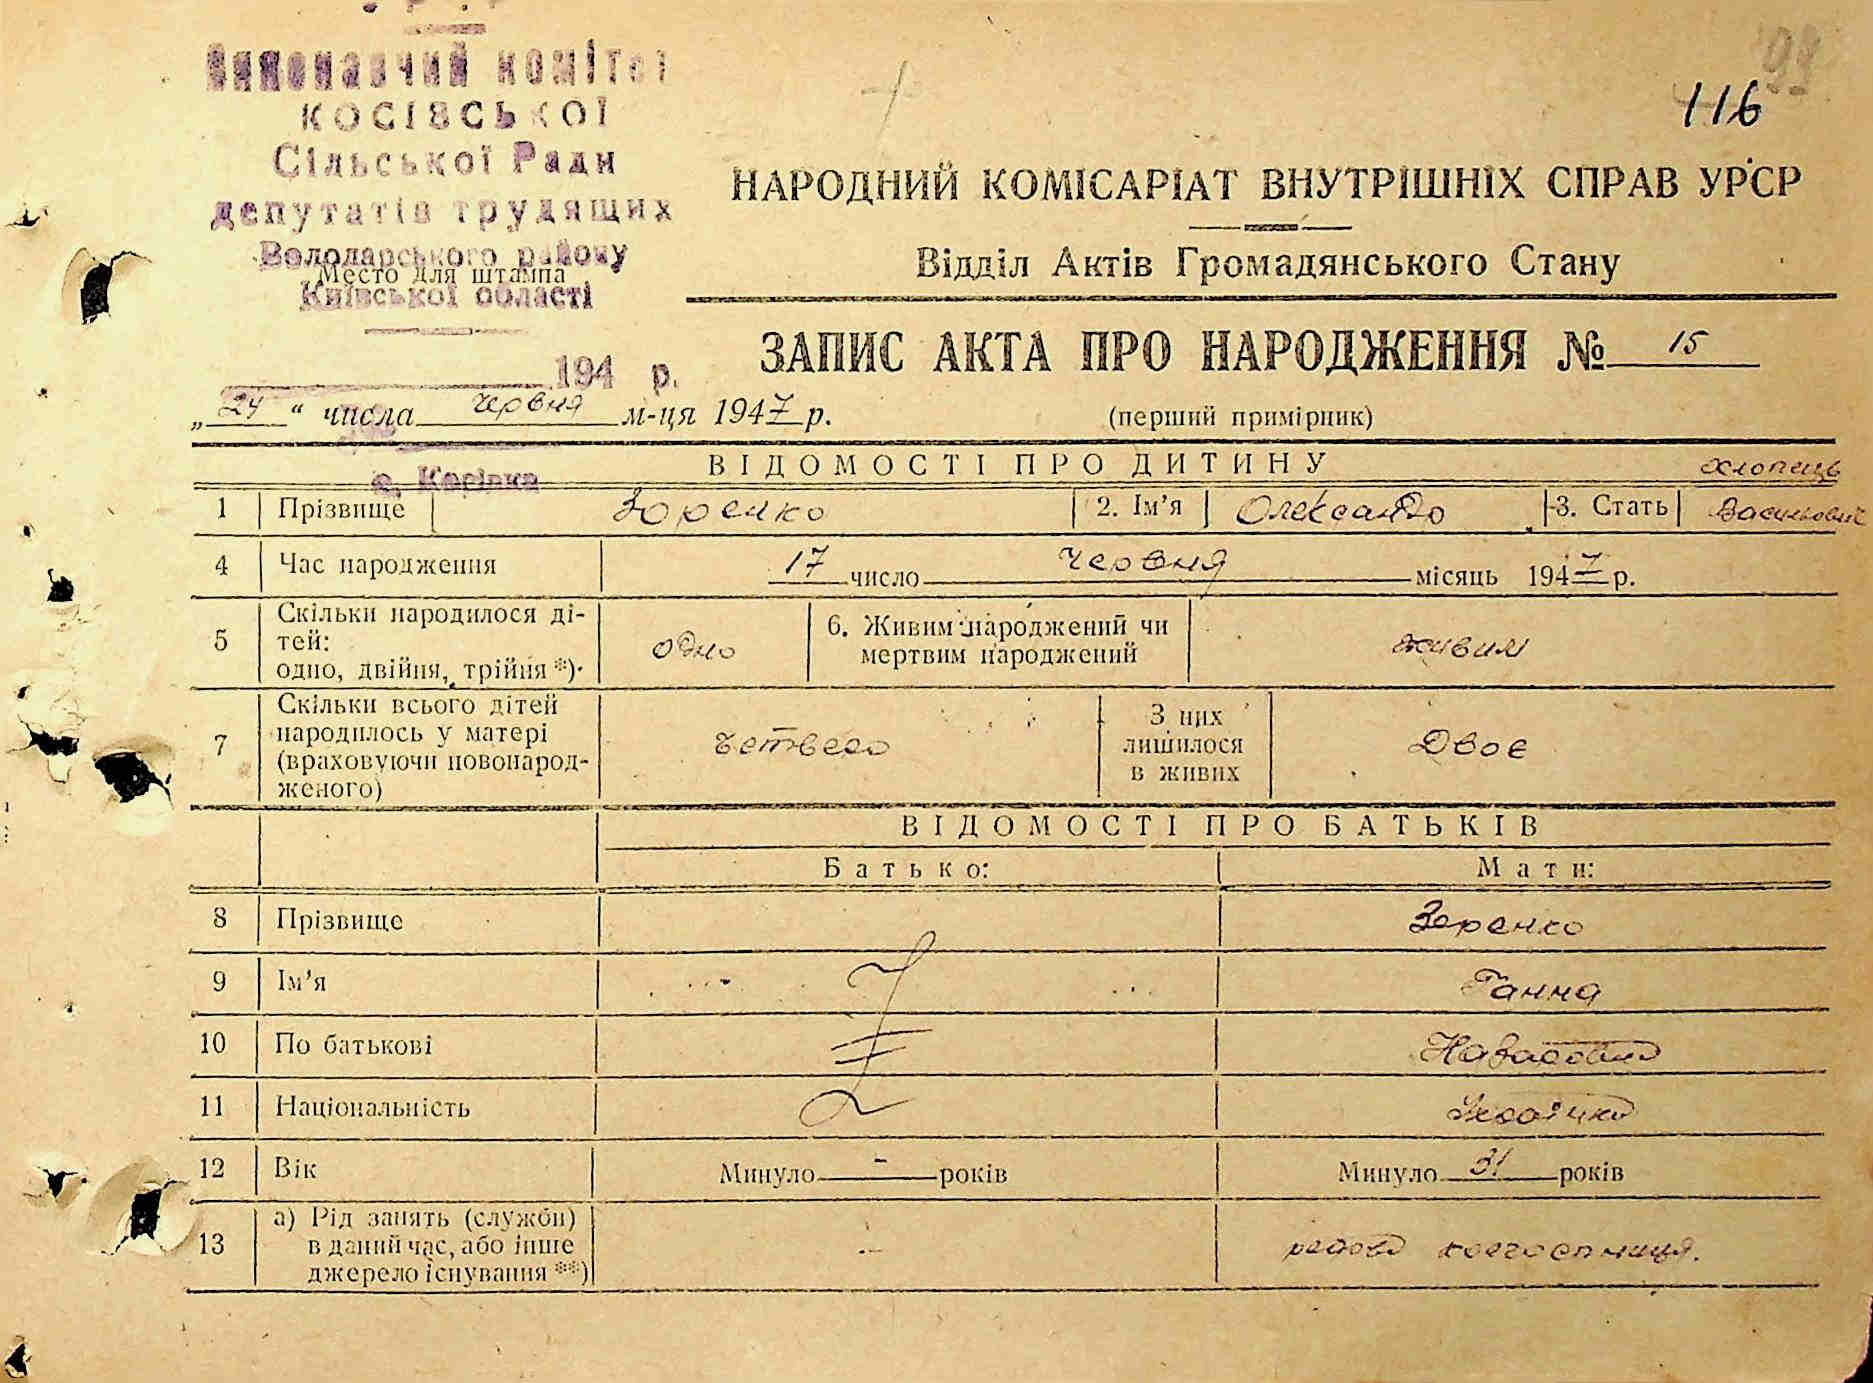 99
116
Виконавчий комітет
КОСІВСЬКОЇ
Сільської Ради
депутатів трудящих
Володарського району
Место для штампа
Київської області
194 р.
НАРОДНИЙ КОМІСАРІАТ ВНУТРІШНІХ СПРАВ УРСР
Відділ Актів Громадянського Стану
ЗАПИС АКТА ПРО НАРОДЖЕННЯ № 15
„24“ числа червня м-ця 1947 р.
(перший примірник)
с. Косівка
ВІДОМОСТІ ПРО ДИТИНУ
хлопець
1 Прізвище Зоренко 2. Ім’я Олександр 3. Стать Васильович
4 Час народження 17 число червня місяць 1947 р.
5 Скільки народилося ді-
тей:
одно, двійня, трійня *)·
одно
6. Живим народжений чи
мертвим народжений
живим
7 Скільки всього дітей
народилось у матері
(враховуючи новонарод-
женого)
четверо
З них
лишилося
в живих
Двоє
ВІДОМОСТІ ПРО БАТЬКІВ
Батько: Мати:
8 Прізвище Зоренко
9 Ім’я Ганна
10 По батькові
11 Національність Українка
12 Вік Минуло - років Минуло 31 років
13 а) Рід занять (служби)
в даний час, або інше
джерело існування **)
-
рядова колгоспниця.